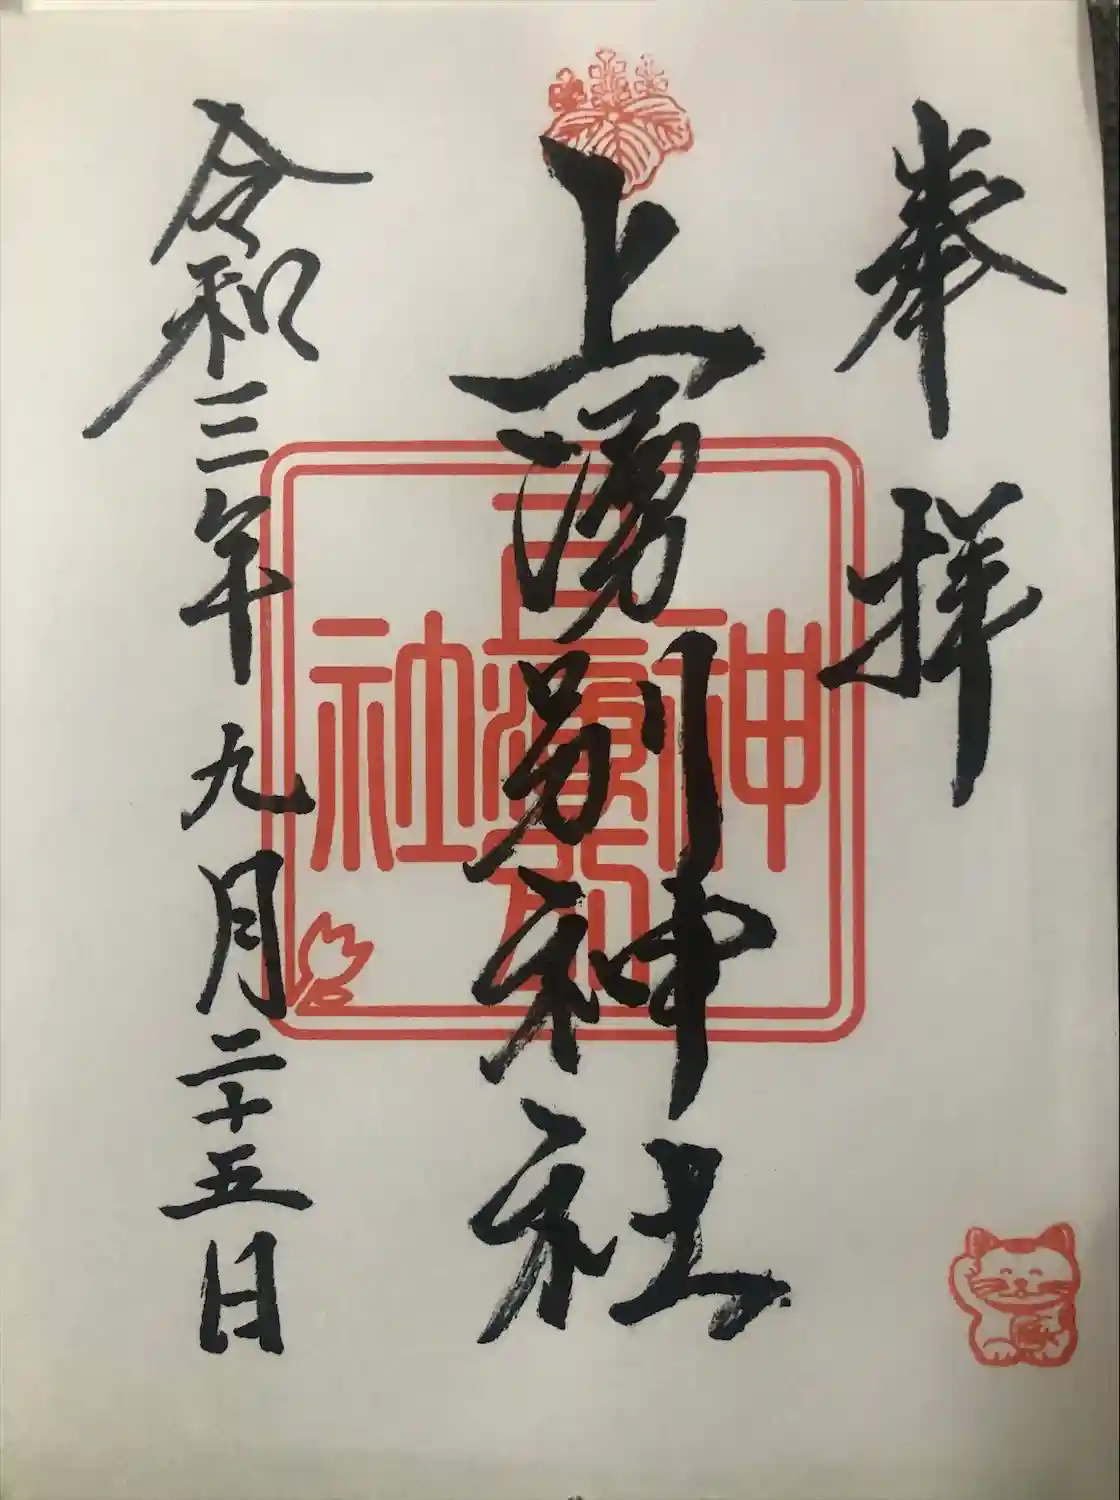 奉拝
上湧別神社
令和三年九月二十五日
神
上湧別
社